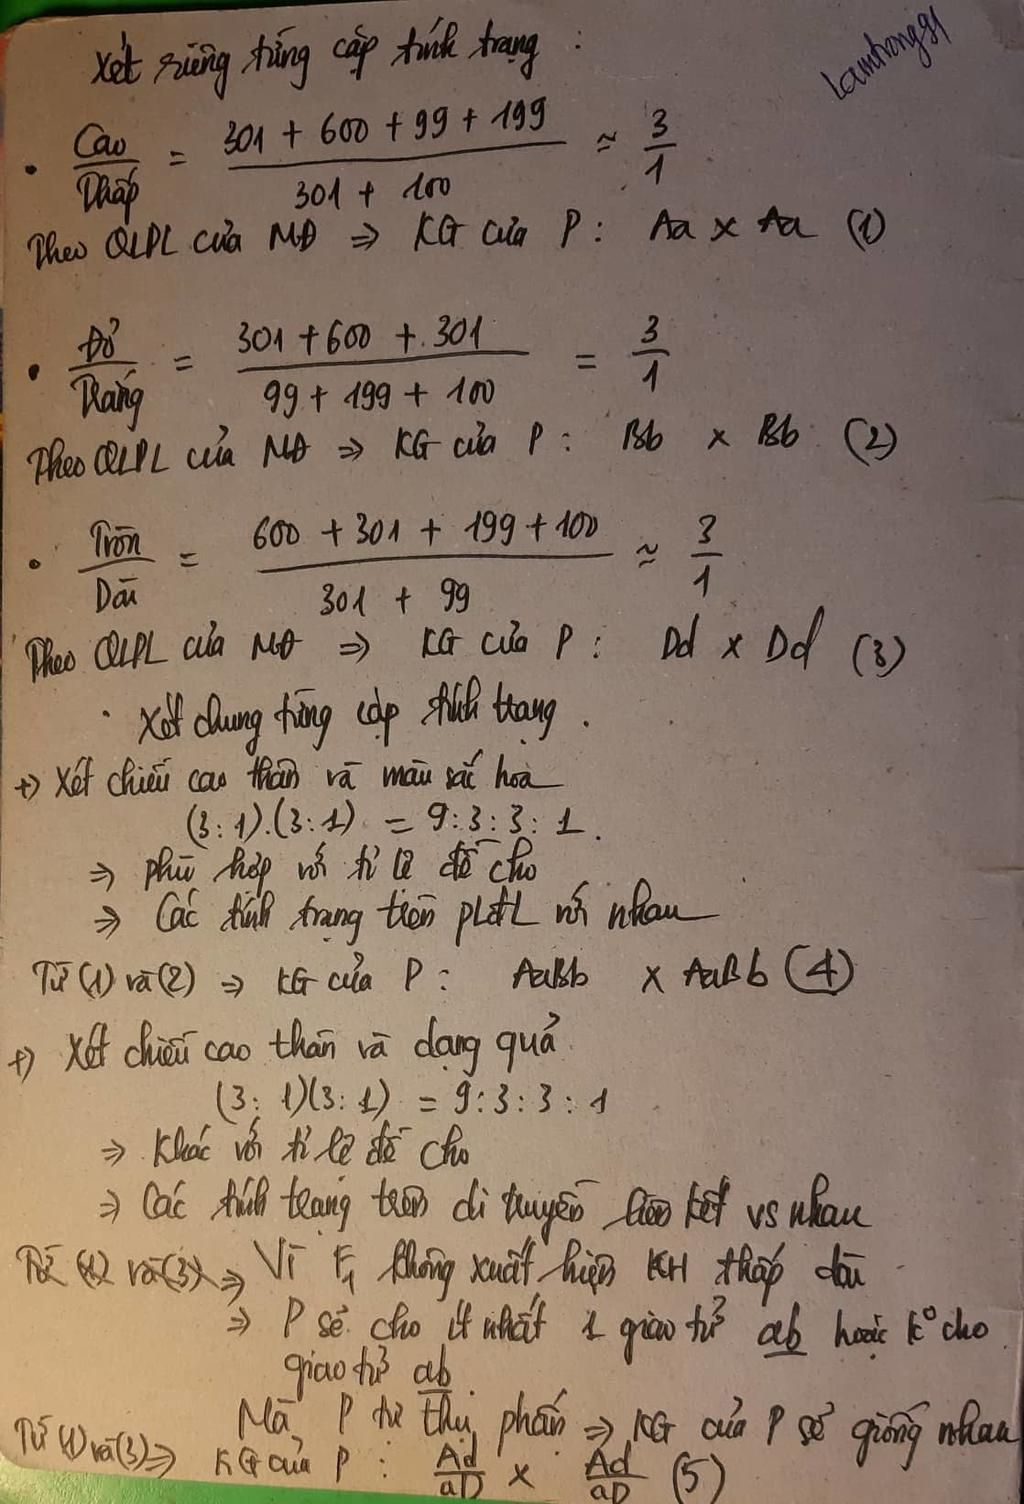 Xét riêng từng cặp tính trạng :
lamtrong91
• Cao/Thấp = (301 + 600 + 99 + 199)/(301 + 100) ≈ 3/1
Theo QLPL của MĐ ⇒ KG của P : Aa x Aa (1)
• Đỏ/Trắng = (301 + 600 + 301)/(99 + 199 + 100) = 3/1
Theo QLPL của MĐ ⇒ KG của P : Bb x Bb (2)
• Tròn/Dài = (600 + 301 + 199 + 100)/(301 + 99) ≈ 3/1
Theo QLPL của MĐ ⇒ KG của P : Dd x Dd (3)
• Xét chung từng cặp tính trạng .
+) Xét chiều cao thân và màu sắc hoa
(3 : 1).(3 : 1) = 9 : 3 : 3 : 1.
⇒ phù hợp với tỉ lệ đề cho
⇒ Các tính trạng trên PLĐL với nhau
Từ (1) và (2) ⇒ KG của P : AaBb x AaBb (4)
+) Xét chiều cao thân và dạng quả
(3 : 1)(3 : 1) = 9 : 3 : 3 : 1
⇒ Khác với tỉ lệ đề cho
⇒ Các tính trạng trên di truyền liên kết vs nhau
Từ (1) và (3) ⇒ Vì F1 không xuất hiện KH thấp dài
⇒ P sẽ cho ít nhất 1 giao tử ab hoặc k° cho
giao tử ab
Mà P tự thụ phấn ⇒ KG của P sẽ giống nhau
Từ (1) và (3) ⇒ KG của P : Ad/aD x Ad/aD (5)